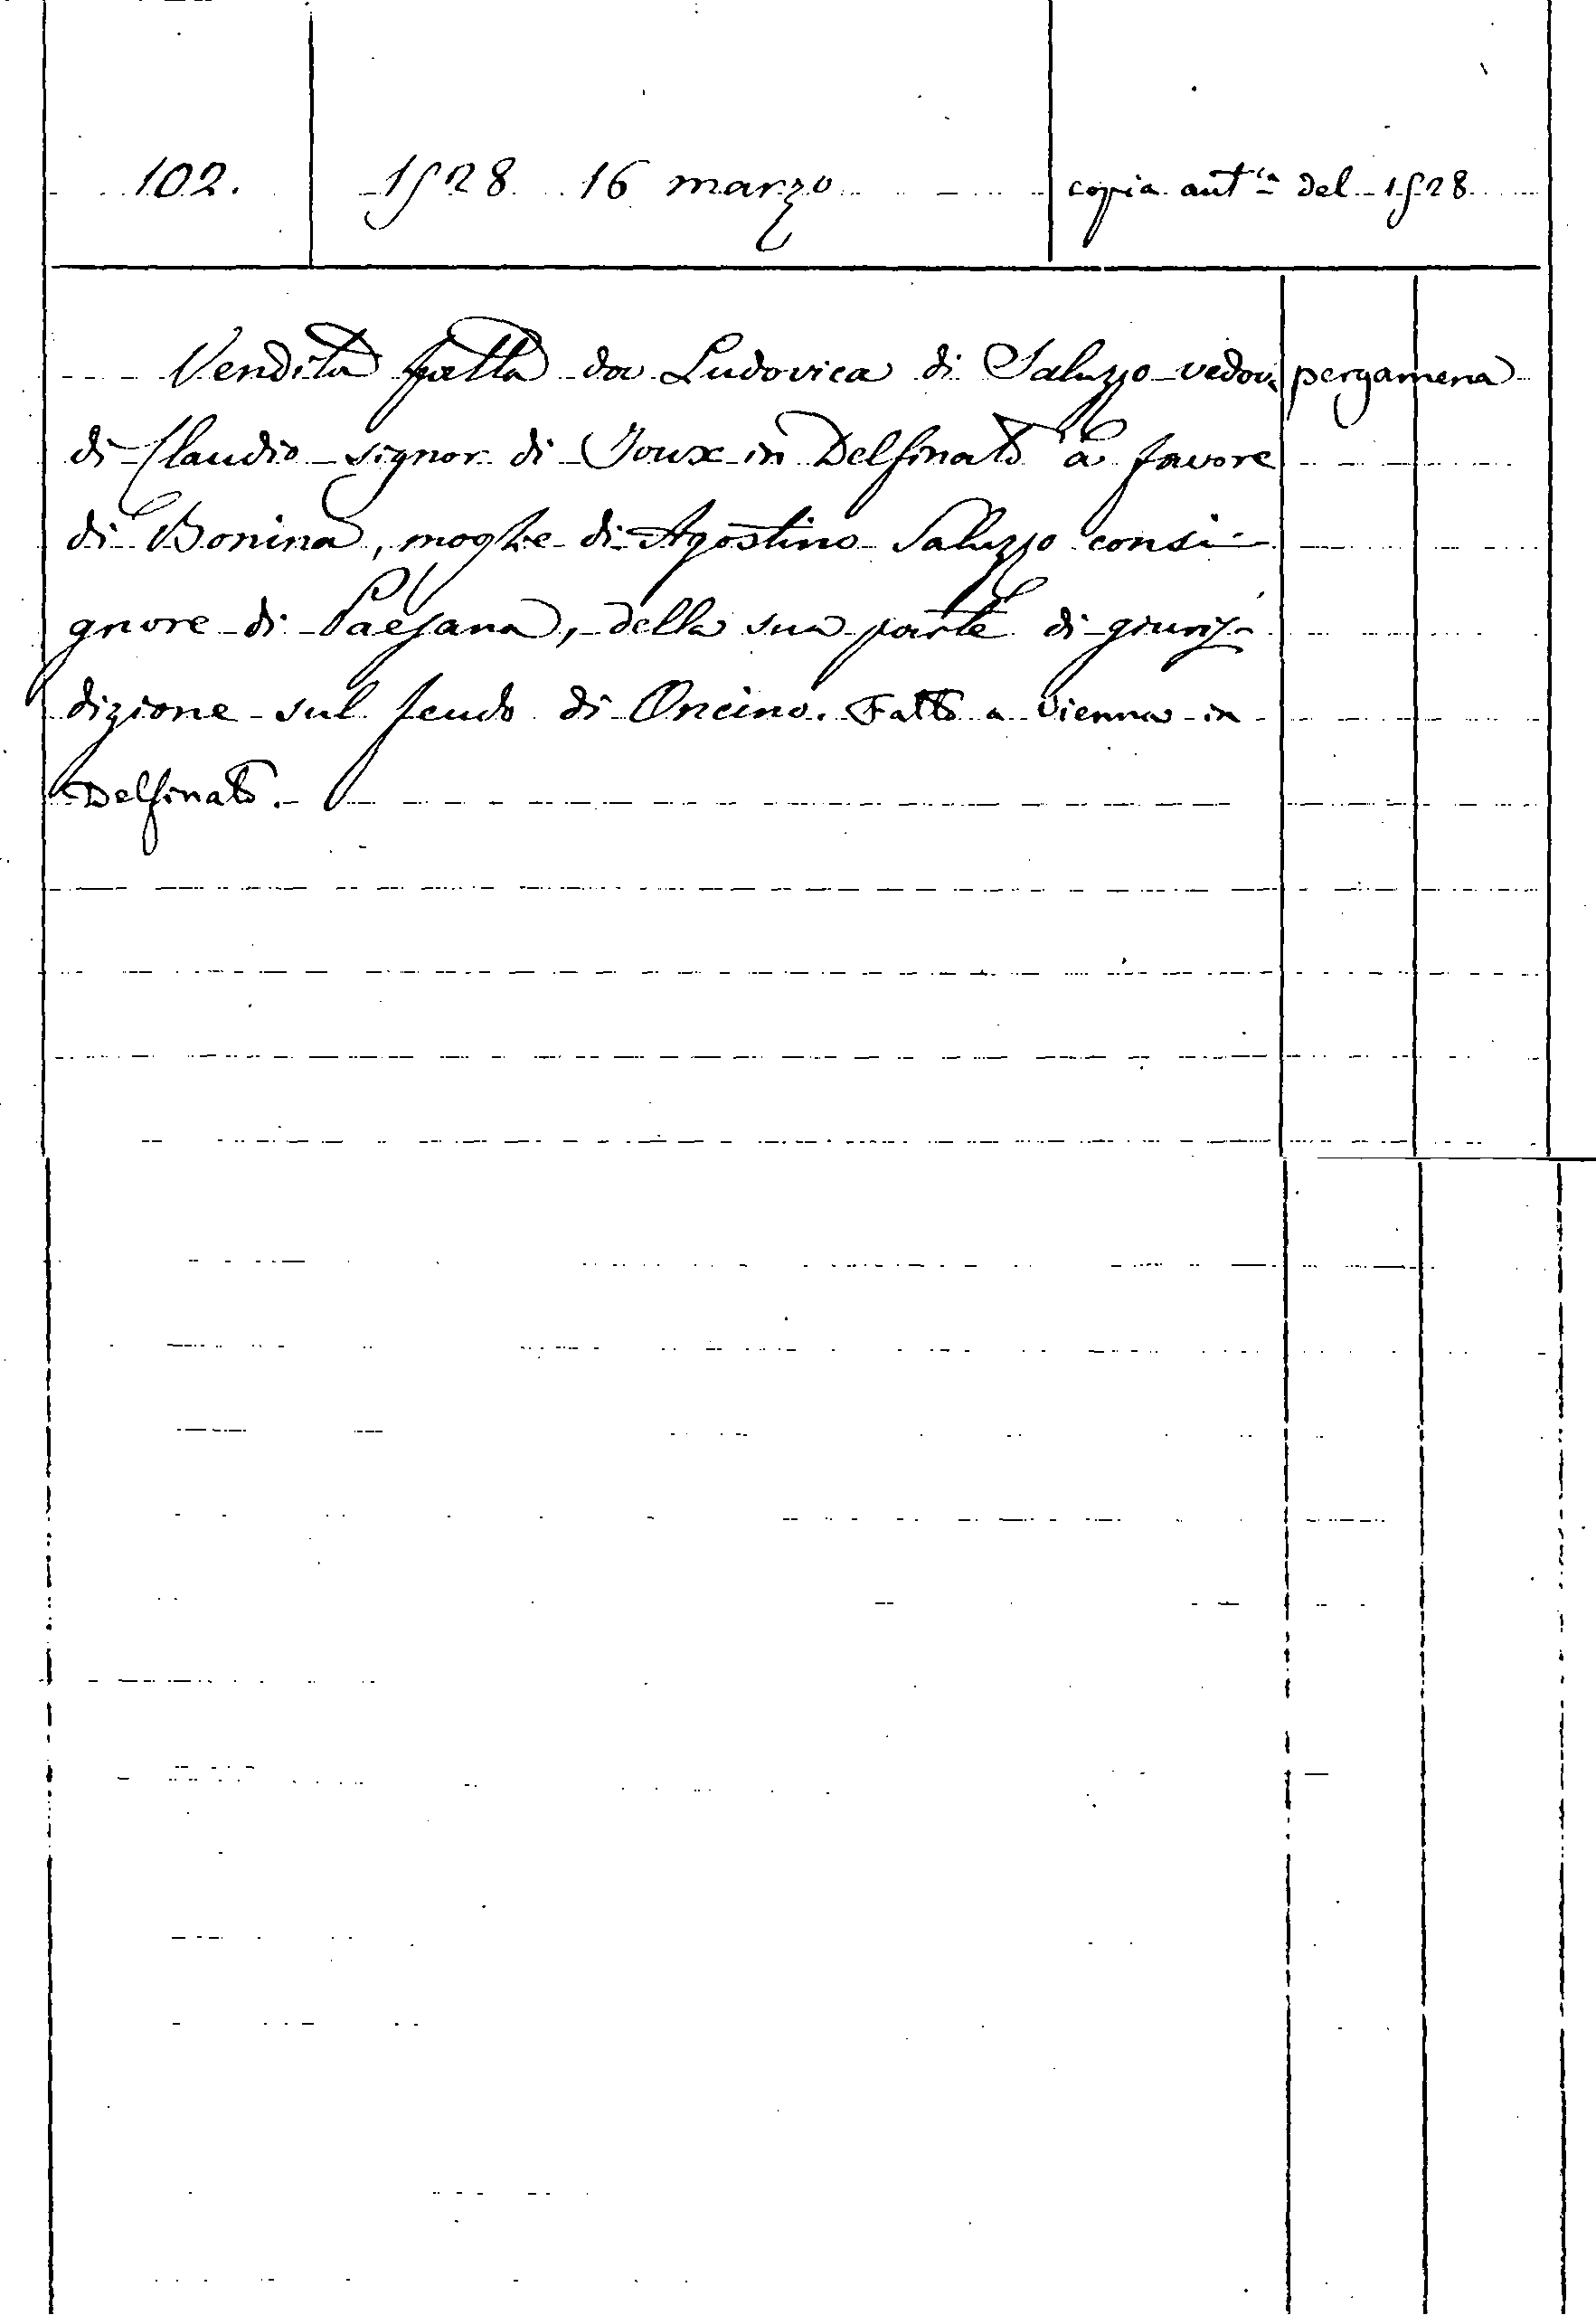 102. 1528 16 marzo copia aut^ca del 1528
Vendita fatta da Ludovica di Saluzzo vedova pergamena
di Claudio signor di Joux in Delfinato a favore
di Bonina, moglie di Agostino Saluzzo consi-
gnore di Paesana, della sua parte di giuris-
dizione sul feudo di Oncino. Fatto a Vienna in
Delfinato.